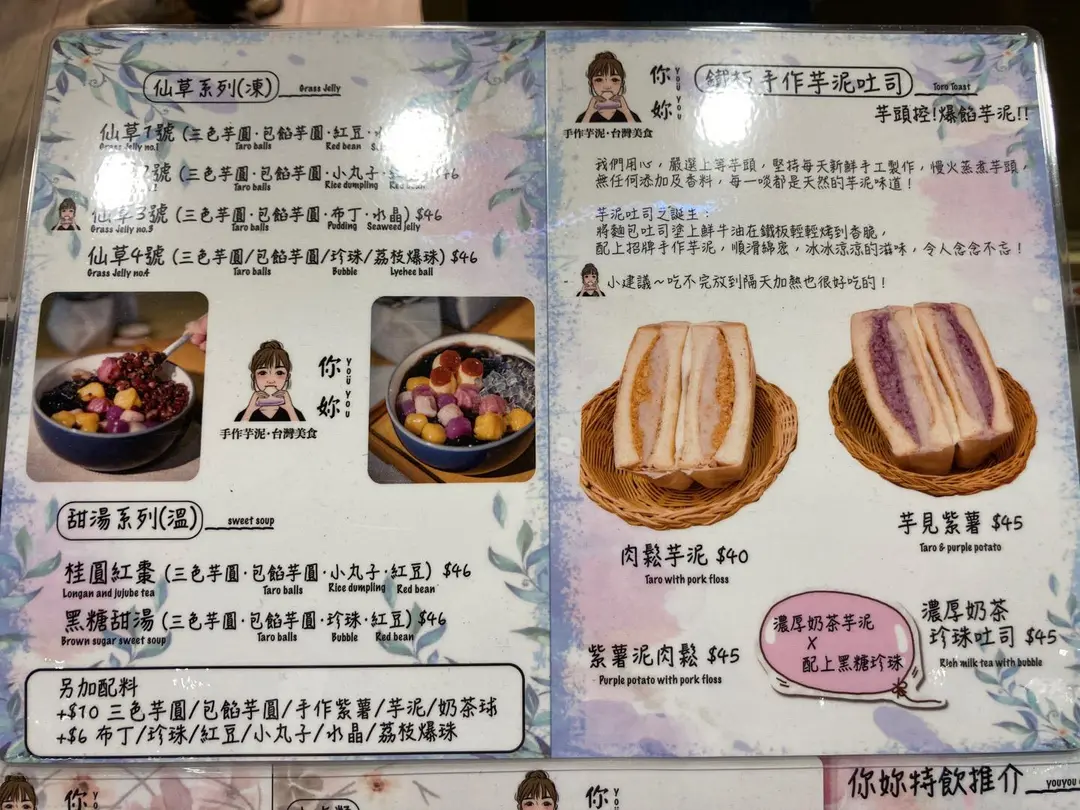 仙草系列(凍) Grass Jelly
仙草1號 (三色芋圓·包餡芋圓·紅豆·
Grass Jelly no.1 Taro balls Red bean
2號 (三色芋圓·包餡芋圓·小丸子· $46
Taro balls Rice dumpling Red bean
仙草3號 (三色芋圓·包餡芋圓·布丁·水晶) $46
Grass Jelly no.3 Taro balls Pudding Seaweed jelly
仙草4號 (三色芋圓/包餡芋圓/珍珠/荔枝爆珠) $46
Grass Jelly no.4 Taro balls Bubble Lychee ball
你妳
YOU YOU
手作芋泥·台灣美食
甜湯系列(溫) sweet soup
桂圓紅棗 (三色芋圓·包餡芋圓·小丸子·紅豆) $46
Longan and jujube tea Taro balls Rice dumpling Red bean
黑糖甜湯 (三色芋圓·包餡芋圓·珍珠·紅豆) $46
Brown sugar sweet soup Taro balls Bubble Red bean
另加配料
+$10 三色芋圓/包餡芋圓/手作紫薯/芋泥/奶茶球
+$6 布丁/珍珠/紅豆/小丸子/水晶/荔枝爆珠
你妳
YOU YOU
手作芋泥·台灣美食
鐵板手作芋泥吐司 Toro Toast
芋頭控!爆餡芋泥!!
我們用心，嚴選上等芋頭，堅持每天新鮮手工製作，慢火蒸煮芋頭，
無任何添加及香料，每一啖都是天然的芋泥味道！
芋泥吐司之誕生：
將麵包吐司塗上鮮牛油在鐵板輕輕烤到香脆，
配上招牌手作芋泥，順滑綿密，冰冰涼涼的滋味，令人念念不忘！
小建議～吃不完放到隔天加熱也很好吃的！
肉鬆芋泥 $40
Taro with pork floss
芋見紫薯 $45
Taro & purple potato
紫薯泥肉鬆 $45
Purple potato with pork floss
濃厚奶茶芋泥
X
配上黑糖珍珠
濃厚奶茶
珍珠吐司 $45
Rish milk tea with bubble
你
YOU
你
YOU
你妳特飲推介 youyou